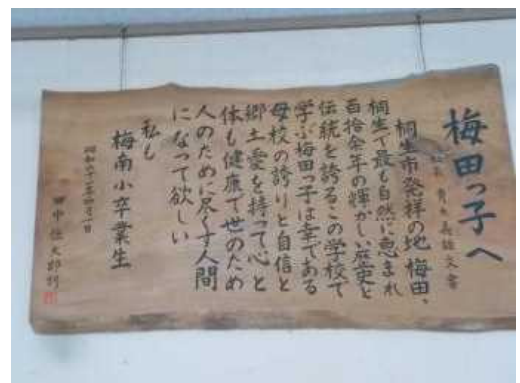 梅田っ子へ
桐生市発祥の地 梅田、
桐生で最も自然に恵まれ
百拾余年の輝かしい歴史と
伝統を誇るこの学校で
学ぶ梅田っ子は幸である
母校の誇りと自信と
郷土愛を持って心と
体も健康で世のため
人のために尽くす人間
になって欲しい
私も
梅南小卒業生